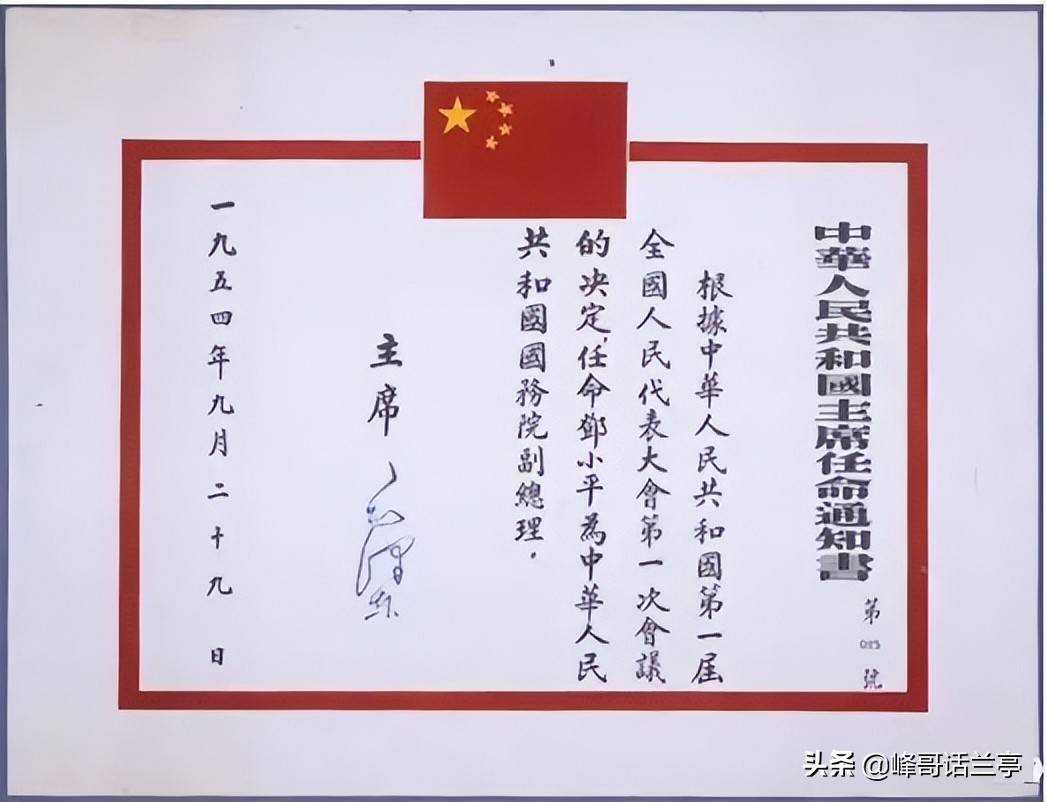 中華人民共和國主席任命通知書
第 013 號
根據中華人民共和國第一屆
全國人民代表大會第一次會議
的决定,任命鄧小平為中華人民
共和國國務院副總理。
主席
毛澤东
一九五四年九月二十九日
头条 @峰哥话兰亭